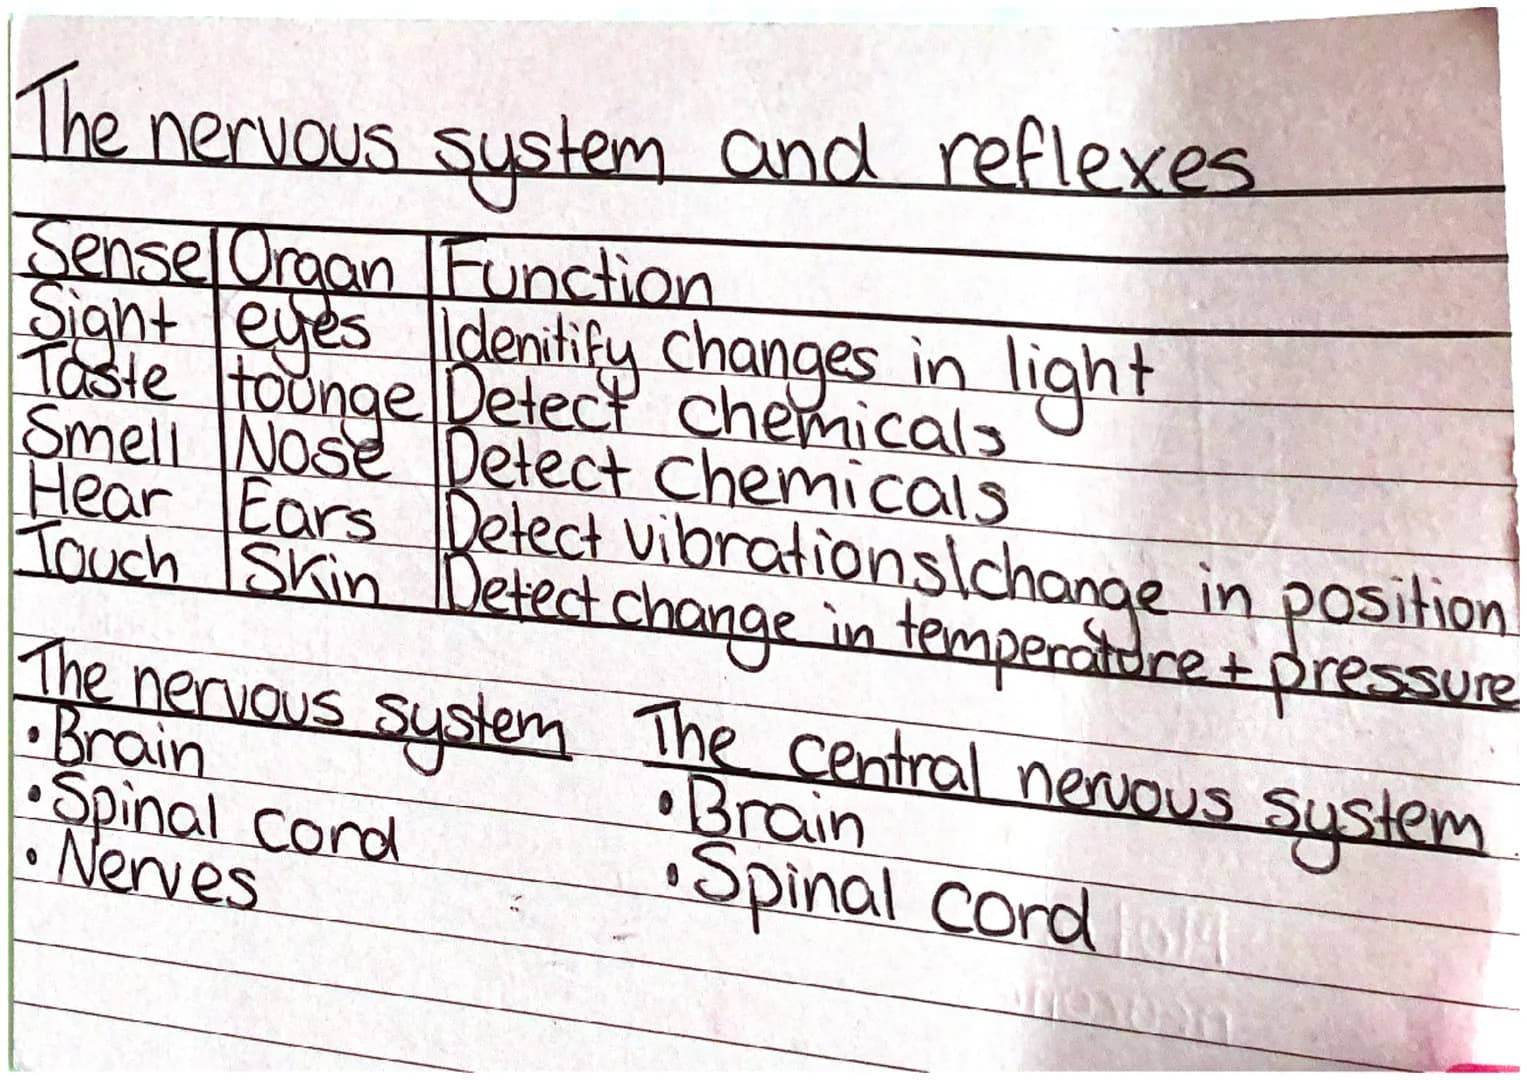 The nervous system and reflexes
Sense Organ Function
Sight eyes Idenitify changes in light
Taste tounge Detect chemicals
Smell Nose Detect chemicals
Hear Ears Detect vibrations\change in position
Touch Skin Detect change in temperature + pressure
The nervous system The central nervous system
• Brain • Brain
• Spinal cord • Spinal cord
• Nerves